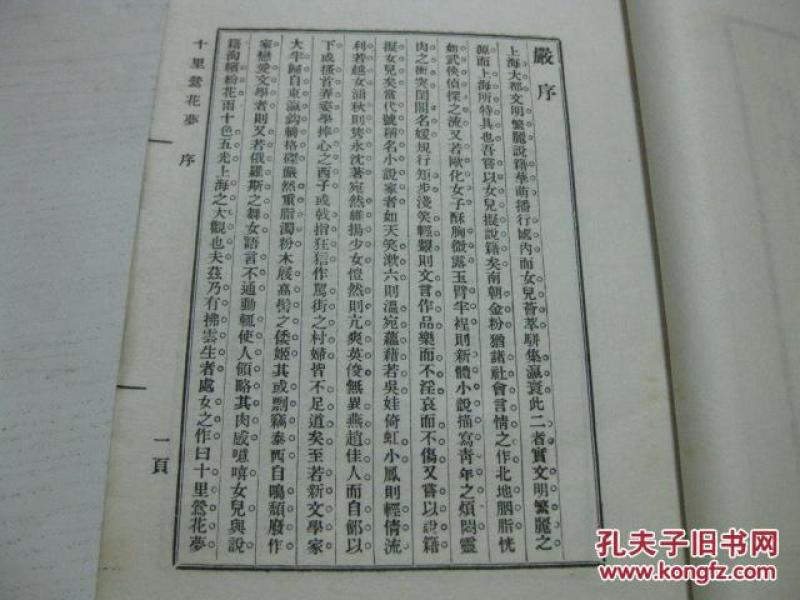 嚴序
上海大都文明繁麗說籍華萌播行國內而女兒薈萃駢集瀛寰此二者實文明繁麗之
源而上海所特具也吾嘗以女兒擬說籍矣南朝金粉猶諸社會言情之作北地胭脂恍
如武俠偵探之流又若歐化女子酥胸微露玉臂半裎則新體小說描寫青年之煩悶靈
肉之衝突閨閣名媛規行矩步淺笑輕顰則文言作品樂而不淫哀而不傷又嘗以說籍
擬女兒矣當代號稱名小說家者如天笑漱六則溫宛蘊藉若吳娃倚虹小鳳則輕倩流
利若越女涵秋則雋永沈著宛然維揚少女愷然則亢爽英俊無異燕趙佳人而自鄶以
下或搔首弄姿學捧心之西子或戟指狂狺作罵街之村婦皆不足道矣至若新文學家
大半歸自東瀛鈎輈格磔嚴然重脂濁粉木屐高髻之倭姬其或剽竊泰西自鳴頹廢作
家戀愛文學者則又若俄羅斯之舞女語言不通動輒使人領略其肉感噫嘻女兒與說
籍洵繽粉花雨十色五光上海之大觀也夫茲乃有拂雲生者處女之作曰十里鶯花夢
十里鶯花夢 序
一頁
孔夫子旧书网
www.kongfz.com